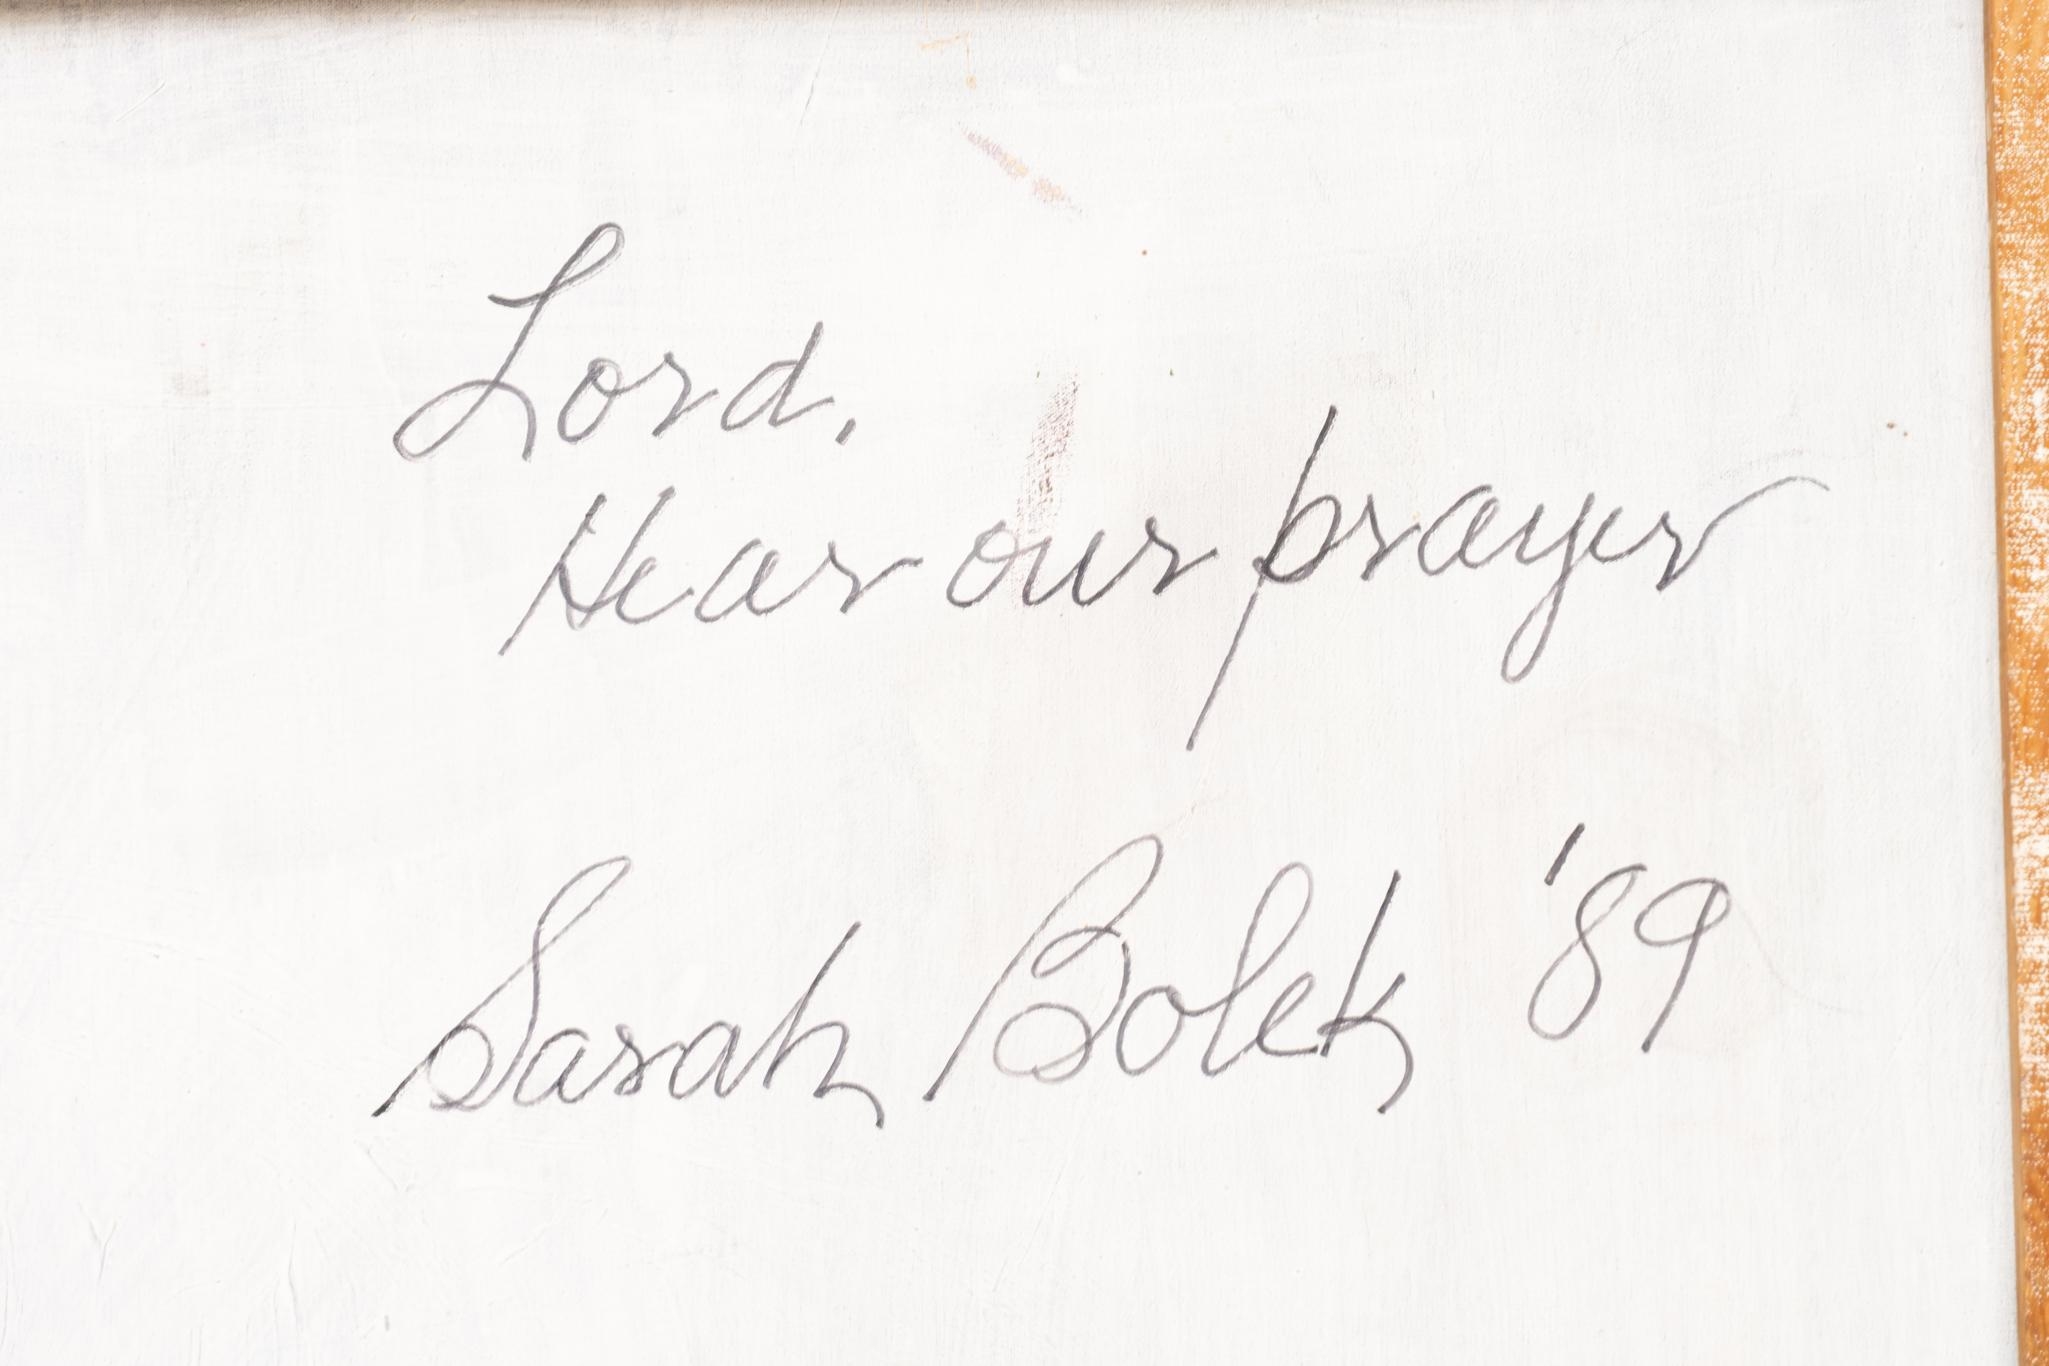 Lord,
Hear our prayer
Sarah Bolek '89